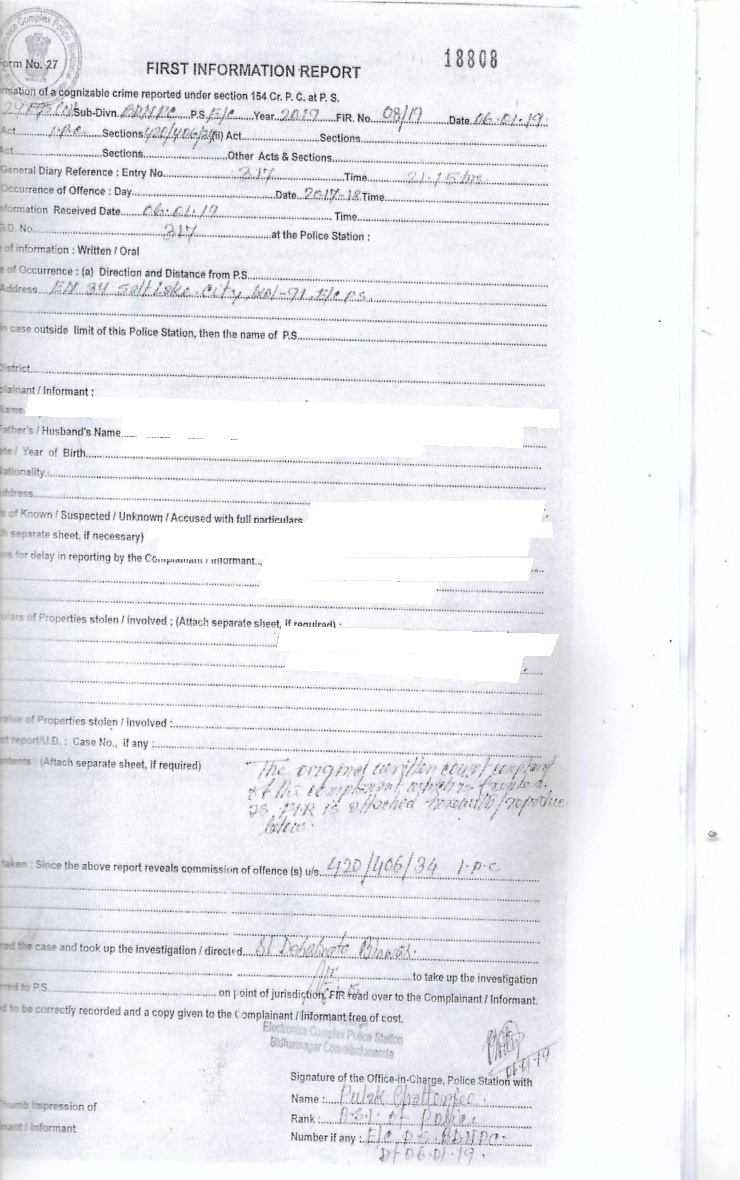 Electronics Complex Police Station
18808
Form No. 27
FIRST INFORMATION REPORT
rmation of a cognizable crime reported under section 154 Cr. P. C. at P. S.
Sub-Divn. P.S. E/C Year 2019 FIR. No. 08/19 Date 06.01.19
Act I.P.C. Sections 420/406/34 (ii) Act Sections
Act Sections Other Acts & Sections
General Diary Reference : Entry No. 317 Time 21:15 hrs
Occurrence of Offence : Day Date 2017-18 Time
nformation Received Date 06.01.19 Time
G.D. No. 317 at the Police Station :
of information : Written / Oral
e of Occurrence : (a) Direction and Distance from P.S.
Address EN 34 Salt Lake City, Kol-91, E/C P.S.
n case outside limit of this Police Station, then the name of P.S.
District
plainant / Informant :
Name
Father's / Husband's Name
ate / Year of Birth
Nationality
ddress
s of Known / Suspected / Unknown / Accused with full particulars
h separate sheet, if necessary)
es for delay in reporting by the Complainant / Informant
ulars of Properties stolen / involved : (Attach separate sheet, if required) :
alue of Properties stolen / involved :
st report/U.D. : Case No., if any :
ntents : (Attach separate sheet, if required)
The original written court complaint
of the complainant which is treated
as FIR is attached herewith/reproduce
below.
taken : Since the above report reveals commission of offence (s) u/s. 420/406/34 I.P.C
red the case and took up the investigation / directed SI Debabrata Biswas.
to take up the investigation
rred to P.S. on point of jurisdiction, FIR read over to the Complainant / Informant.
d to be correctly recorded and a copy given to the Complainant / Informant free of cost.
Electronics Complex Police Station
Bidhannagar Commissionerate
06.01.19
Signature of the Office-in-Charge, Police Station with
Name : Pulak Chatterjee.
Thumb Impression of
Rank : A.S.I of Police
nant / Informant
Number if any : E/C P.S.
Dt 06.01.19.